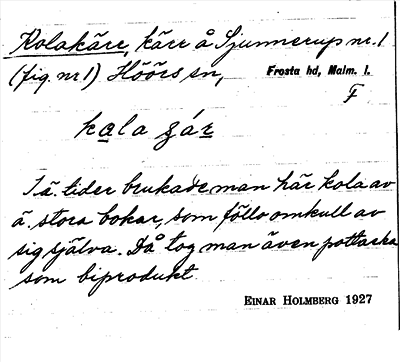 Kolakärr, kärr å Sjunnerup nr. 1
(fig. nr 1) Höörs sn, Frosta hd, Malm. l.
F
kola
I ä. tider brukade man här kola av
ä stora bokar, som föllo omkull av
sig själva. Då tog man även pottaska
som biprodukt
EINAR HOLMBERG 1927